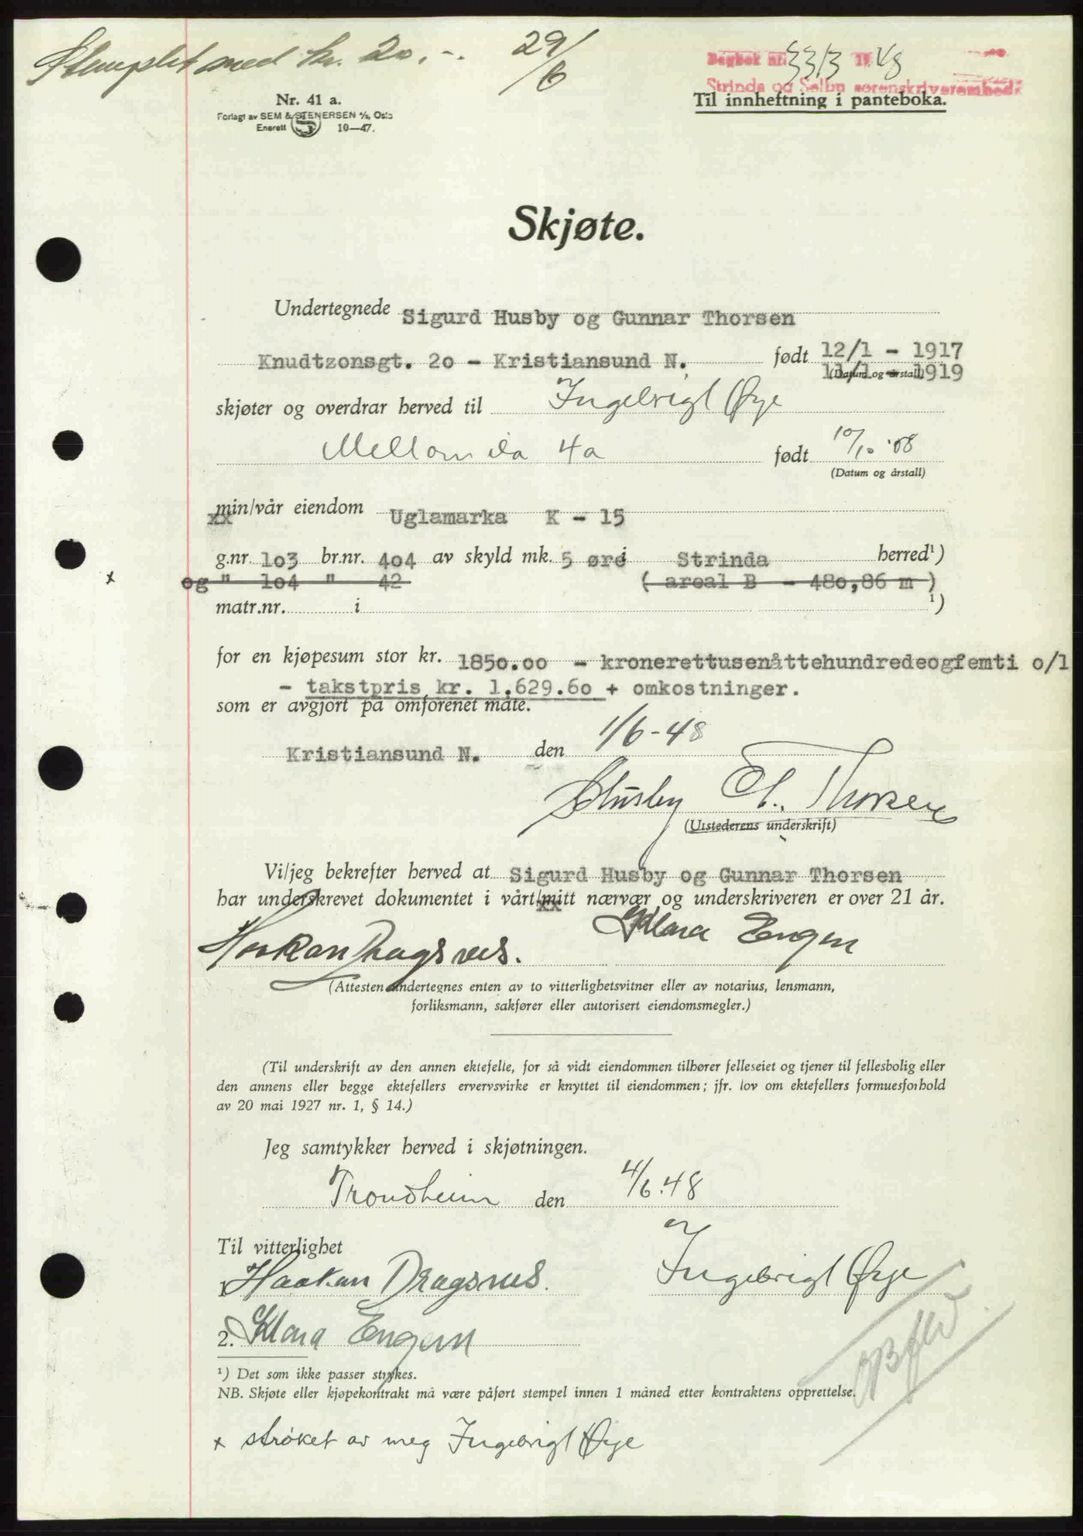 Stemplet med kr. 20.-. 29/6
Dagbok nr. 3313 1948
Strinda og Selbu sorenskriverembede
Nr. 41 a.
Forlagt av SEM & STENERSEN A/S, Oslo
Enerett 10—47.
Til innheftning i panteboka.
Skjøte.
Undertegnede Sigurd Husby og Gunnar Thorsen
Knudtzonsgt. 20 - Kristiansund N. født 12/1 - 1917
(Datum og årstall) 11/1 - 1919
skjøter og overdrar herved til Ingebrigt Øye
Mellomila 4a født 10/10 '08
(Datum og årstall)
min/vår eiendom Uglamarka K - 15
g.nr 103 br.nr. 404 av skyld mk. 5 øre i Strinda herred¹)
x og " 104 " 42 ( areal B - 480,86 m )
matr.nr. i ¹)
for en kjøpesum stor kr. 1850.00 - kronerettusenåttehundredeogfemti o/1
- takstpris kr. 1.629.60 + omkostninger.
som er avgjort på omforenet måte.
Kristiansund N. den 1/6-48
S Husby G. Thorsen
(Utstederens underskrift)
Vi/jeg bekrefter herved at Sigurd Husby og Gunnar Thorsen
har underskrevet dokumentet i vårt/mitt nærvær og underskriveren er over 21 år.
Haakan Dragsnes. Klara Engen
(Attesten undertegnes enten av to vitterlighetsvitner eller av notarius, lensmann,
forliksmann, sakfører eller autorisert eiendomsmegler.)
(Til underskrift av den annen ektefelle, for så vidt eiendommen tilhører felleseiet og tjener til fellesbolig eller
den annens eller begge ektefellers ervervsvirke er knyttet til eiendommen; jfr. lov om ektefellers formuesforhold
av 20 mai 1927 nr. 1, § 14.)
Jeg samtykker herved i skjøtningen.
Trondheim den 4/6.48
Til vitterlighet
Haakan Dragsnes. Ingebrigt Øye
2. Klara Engen
¹) Det som ikke passer strykes.
NB. Skjøte eller kjøpekontrakt må være påført stempel innen 1 måned etter kontraktens opprettelse.
x strøket av meg Ingebrigt Øye